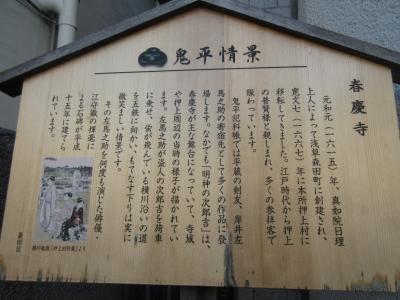 鬼平情景
春慶寺
元和元（一六一五）年、真如院日理
上人によって浅草森田町に創建され、
寛文七（一六六七）年に本所押上村に
移転してきました。江戸時代から押上
の普賢様と親しまれ、多くの参拝客で
賑わっています。
鬼平犯科帳では平蔵の剣友、岸井左
馬之助の寄宿先として多くの作品に登
場します。なかでも「明神の次郎吉」は、
春慶寺が主な舞台になっていて、寺域
や押上周辺の当時の様子が描かれてい
ます。左馬之助が盗人の次郎吉を荷車
に乗せ、蛍が飛んでいる横川沿いの道
を五鉄に向かい、もてなす下りは実に
微笑ましい情景です。
その左馬之助を何度も演じた俳優・
江守徹の揮毫に
よる石碑が平成
十五年に建てら
れています。
墨田区